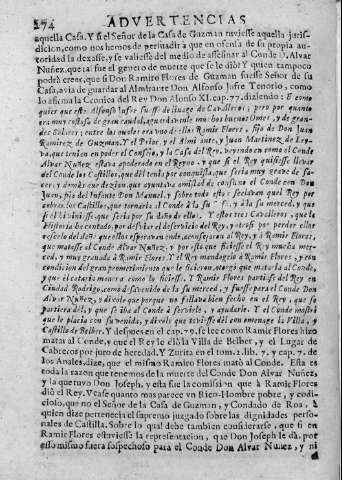 274 ADVERTENCIAS
aquella Casa. Y si el Señor de la Casa de Guzman tuviesse aquella juris-
dicion, como nos hemos de persuadir a que en ofensa de su propia au-
toridad la dexasse, y se valiesse del medio de assesinar al Conde D. Alvar
Nuñez, que tal fue el genero de muerte que se le diò? Y quien tampoco
podrà creer, que si Don Ramiro Flores de Guzman fuesse Señor de su
Casa, avia de guardar al Almirante Don Alfonso Jufre Tenorio, como
lo afirma la Cronica del Rey Don Alonso XI. cap. 77. diziendo: E como
quier que este Alfonso Jufre fuesse de linage de Cavalleros; pero por quanto
era muy costoso de gran caudal, aguardavanle muchos buenos Omes, y de gran-
des Solares; entre los quales era uno dellos Ramir Flores, fijo de Don Juan
Ramirez de Guzman. Y el Prior, y el Almirante, y Juan Martinez de Ley-
va, que tenian en poder el Consejo, y la Casa del Rey, veyendo en como el Conde
Alvar Nuñez estava apoderado en el Reyno, y que si el Rey quisiesse llevar
del Conde los Castillos, que del tenia por conquista, que seria muy grave de fa-
zer, y demàs que dezian, que ayuntava amistad de consuno el Conde con Don
Juan, fijo del Infante Don Manuel, y sobre todo esto fueron aquel Rey por
cobrar los Castillos, que tornaria al Conde à la su merced, y que
si el Conde tornasse, que seria por su daño de ellos. Y estos tres Cavalleros, que la
Historia ha contado, por desviar el deservicio del Rey, y otrosi por perder ellos
rezelo del daño que ellos esperavan ende, aconsejaron al Rey, y à Ramir Flores,
que matasse al Conde Alvar Nuñez, y por esto que ficiesse el Rey mucha mer-
ced, y muy granada à Ramir Flores. Y el Rey mandogelo à Ramir Flores, y con
condicion del gran prometimiento que le ficieron, otorgò que mataria al Conde,
y que èl cataria manera como lo ficiesse. Y Ramir Flores partiose del Rey en
Ciudad Rodrigo, como desavenido de la su merced, y fuesse para el Conde Don
Alvar Nuñez, y dixole que porque no fallava bien fecho en el Rey, que se
partiera dèl, y que se iba al Conde à servirle, y ayudarle. Y el Conde mostrò
que le placia con su venida, y dixole que tuviesse dèl con omenage la Villa, y
Castillo de Belber. Y despues en el cap. 79. se lee como Ramir Flores hizo
matar al Conde, y que el Rey le diò la Villa de Belber, y el Lugar de
Cabreros por juro de heredad. Y Zurita en el tom. 2. lib. 7. y cap. 7. de
los Anales, dize, que el mismo Ramiro Flores matò al Conde. Esta es
toda la razon que tenemos de la muerte del Conde Don Alvar Nuñez,
y la que tuvo Don Joseph, y esta fue la comission que à Ramir Flores
diò el Rey. Vease quanto mas parece vn Rico-Hombre pobre, y co-
dicioso, que no Señor de la Casa de Guzman, y Condado de Roa, à
quien dize pertenecia el supremo juzgado sobre las dignidades perso-
nales de Castilla. Sobre lo qual debe tambien considerarse, que si en
Ramir Flores estuviesse la representacion, que Don Joseph le dà, por
esso mismo fuera sospechoso para el Conde Don Alvar Nuñez, y ni